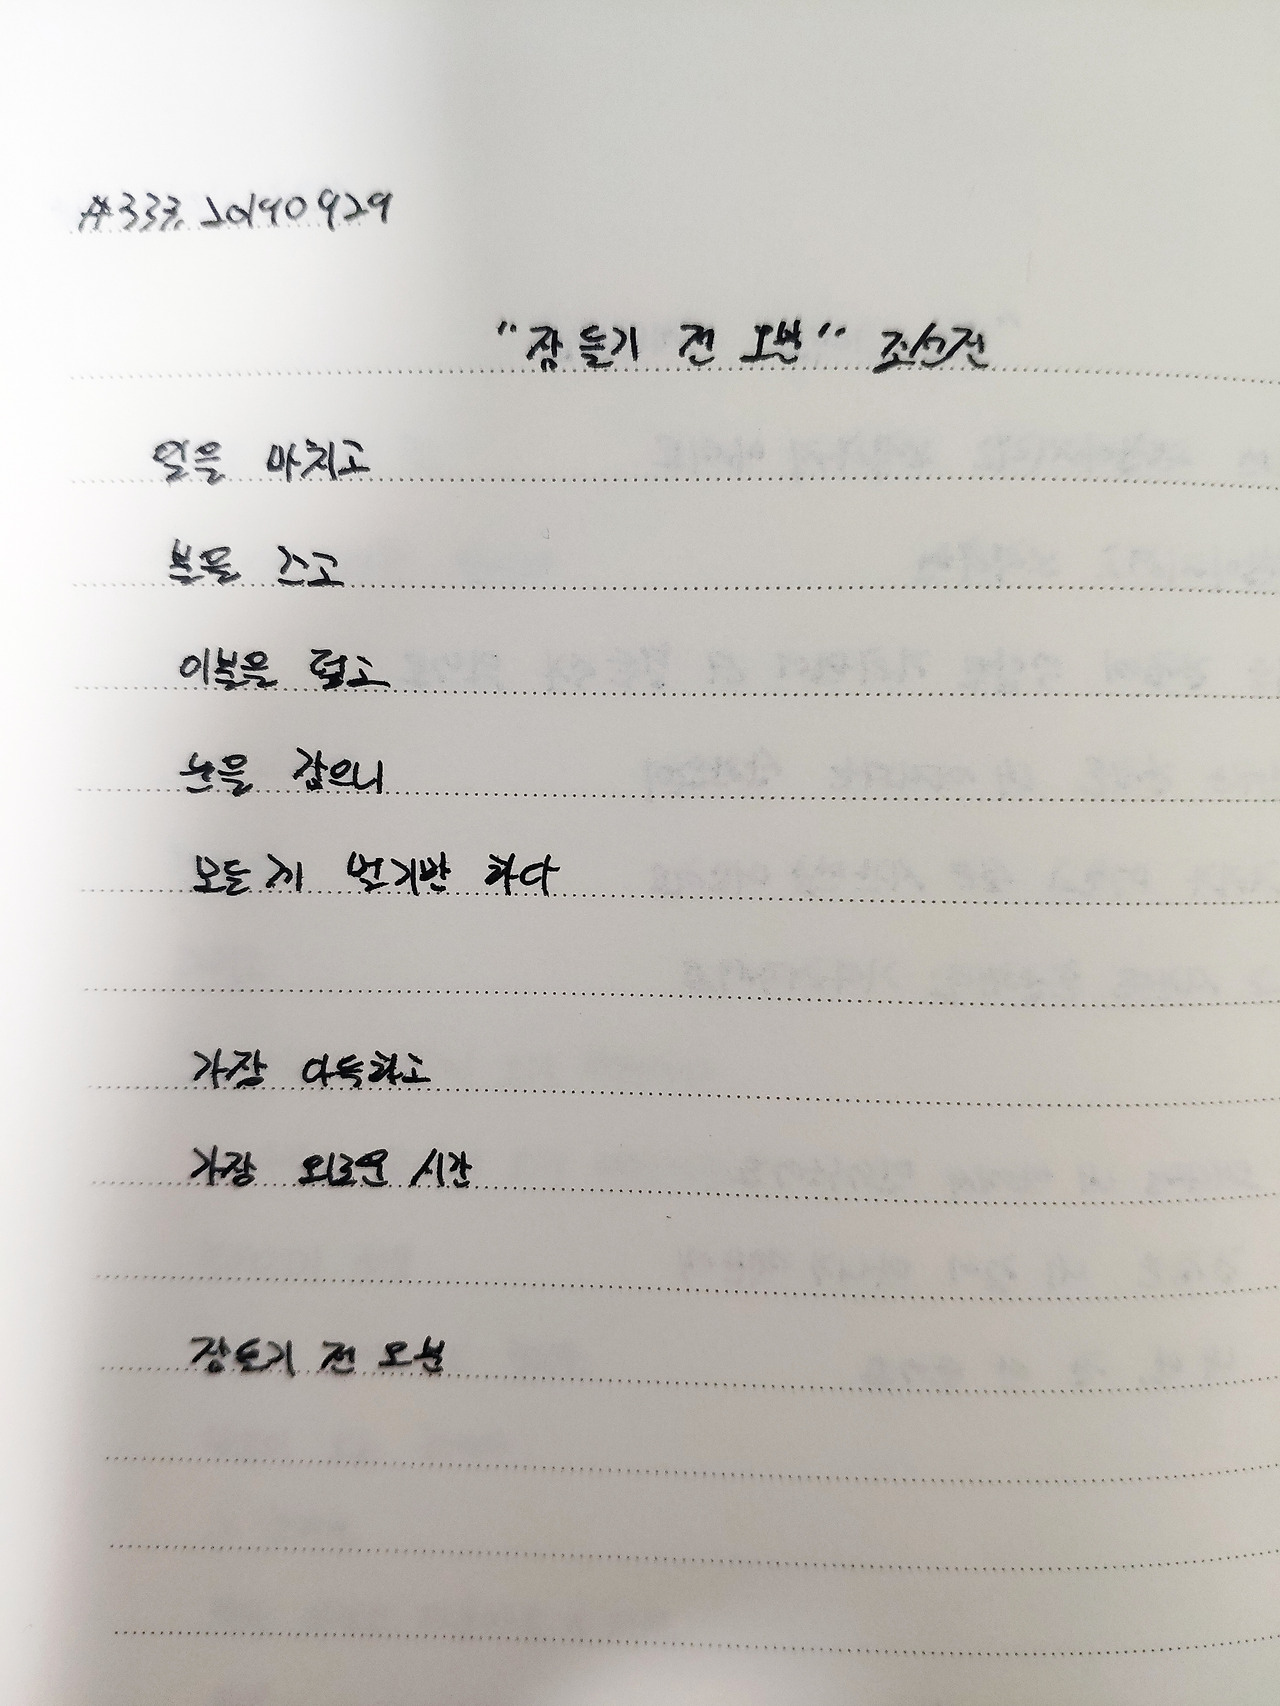 #333. 20190929
"잠들기 전 오분" 조선진
일을 마치고
불을 끄고
이불을 덮고
눈을 감으니
모든 게 번거반 하다
가장 아득하고
가장 외로운 시간
잠들기 전 오분